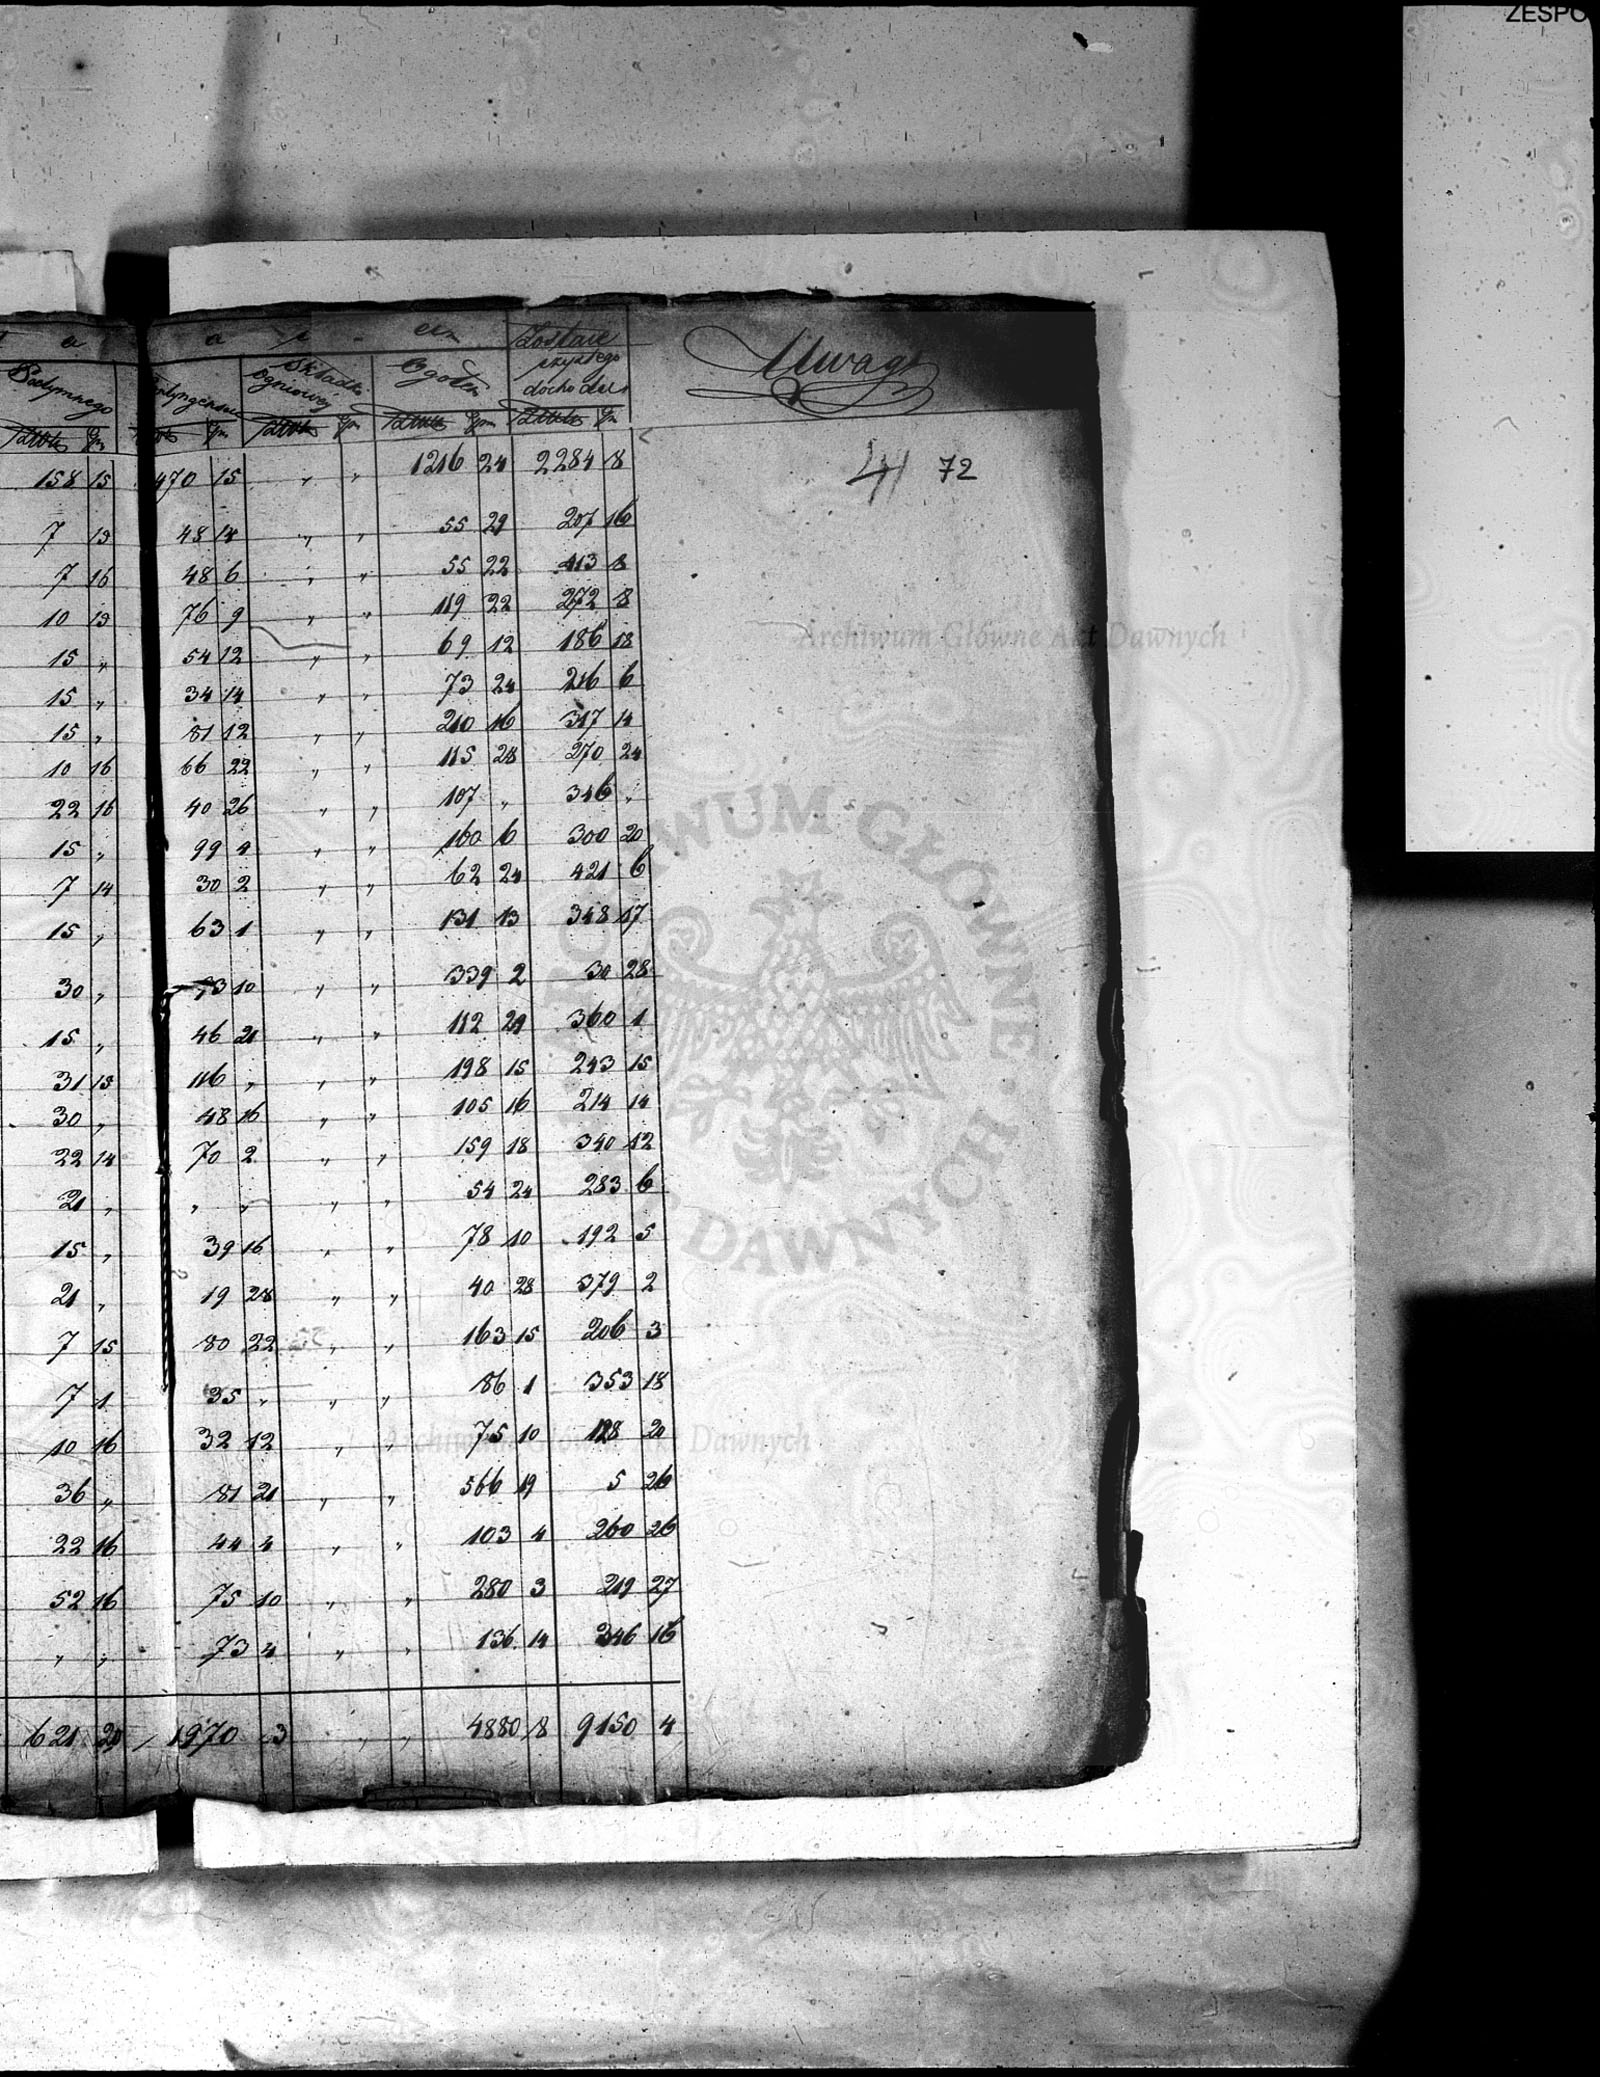 ZESPO
a a em Zostaie
Podymnego Składki ogniowey Ogołem czystego dochodu Uwagi
Złote gr Złote gr Złote gr Złote gr Złote gr
158 15 470 15 „ „ 1216 24 2284 8
41 72
7 13 48 14 „ „ 55 29 207 16
7 16 48 6 „ „ 55 22 413 8
10 13 76 9 „ „ 119 22 272 8
15 „ 54 12 „ „ 69 12 186 18
15 „ 34 14 „ „ 73 24 216 6
15 „ 81 12 „ „ 210 16 317 14
10 16 66 22 „ „ 115 28 270 24
22 16 40 26 „ „ 107 „ 346 „
15 „ 99 4 „ „ 160 6 300 20
7 14 30 2 „ „ 62 24 421 6
15 „ 63 1 „ „ 131 13 348 17
30 „ 73 10 „ „ 339 2 30 28
15 „ 46 21 „ „ 112 29 360 1
31 15 116 „ „ „ 198 15 243 15
30 „ 48 16 „ „ 105 16 214 14
22 14 70 2 „ „ 159 18 340 12
21 „ „ „ „ „ 54 24 283 6
15 „ 39 16 „ „ 78 10 192 5
21 „ 19 28 „ „ 40 28 379 2
7 15 80 22 „ „ 163 15 206 3
7 1 35 „ „ „ 86 1 353 18
10 16 32 12 „ „ 75 10 128 20
36 „ 81 21 „ „ 566 19 5 26
22 16 44 4 „ „ 103 4 260 26
52 16 75 10 „ „ 280 3 219 27
„ „ 73 4 „ „ 136 14 346 16
621 20 1970 3 „ „ 4880 8 9150 4
Archiwum Główne Akt Dawnych
ARCHIWUM GŁÓWNE AKT DAWNYCH
Archiwum Główne Akt Dawnych